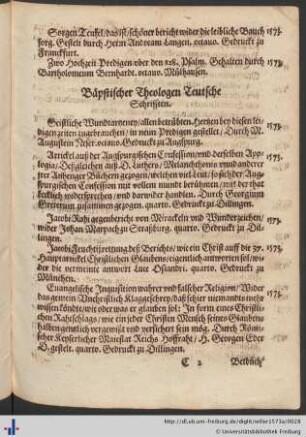 Sorgen Teufel/das ist/schöner bericht wider die leibliche Bauch 1573.
sorg. Gestelt durch Herrn Andream Langen. octauo. Gedruckt zu
Franckfurt.
Zwo Hochzeit Predigen vber den 128. Psalm. Gehalten durch 1573.
Bartholomeum Bernhardt. octauo. Mülhausen.
Bäpstischer Theologen Teutsche
Schrifften.
Geistliche Wundtartzney/allen betrübten Hertzen bey diesen lei- 1573.
digen zeiten zugebrauchen/in neün Predigen gestellet/Durch M.
Augustein Neser. octauo. Gedruckt zu Augspurg.
Artickel auß der Augspurgischen Confession/vnd derselben Apo- 1573.
logia/Deßgleichen auß D. Luthers/Melanchthonis vnnd anderer
jrer Anhenger Büchern gezogen/welchen viel leut/so sich der Aug-
spurgischen Confession mit vollem mundt berühmen/mit der that
kecklich widersprechen/vnd darwider handlen. Durch Georgium
zusammen gezogen. quarto. Gedruckt zu Dillingen.
Jacobi Rabi gegenbericht von Mirackeln vnd Wunderzeichen/ 1573.
wider Johan Marpach zu Straßburg. quarto. Gedruckt zu Dil-
lingen.
Jacobi Feuchtij rettung deß Berichts/wie ein Christ auff die 37. 1573.
Hauptartickel Christlichen Glaubens/eigentlich antworten sol/wi-
der die vermeinte antwort Luce Osiandri. quarto. Gedruckt zu
München.
Euangelische Inquisition wahrer vnd falscher Religion/Wider 1573.
das gemein Vnchristlich Klaggeschrey/daß schier niemandts mehr
wissen köndt/wie oder was er glauben sol: In form eines Christli-
chen Rahtschlags/wie ein jeder Christen Mensch seines Glaubens
halben gentzlich vergwißt vnd versichert sein mög. Durch Röm-
scher Keyserlicher Maiestat Reichs Hoffraht/H. Georgen Eder
D. gestelt. quarto. Gedruckt zu Dillingen.
C 2 Betbüch
http://dl.ub.uni-freiburg.de/diglit/willer1573a/0028
© Universitätsbibliothek Freiburg